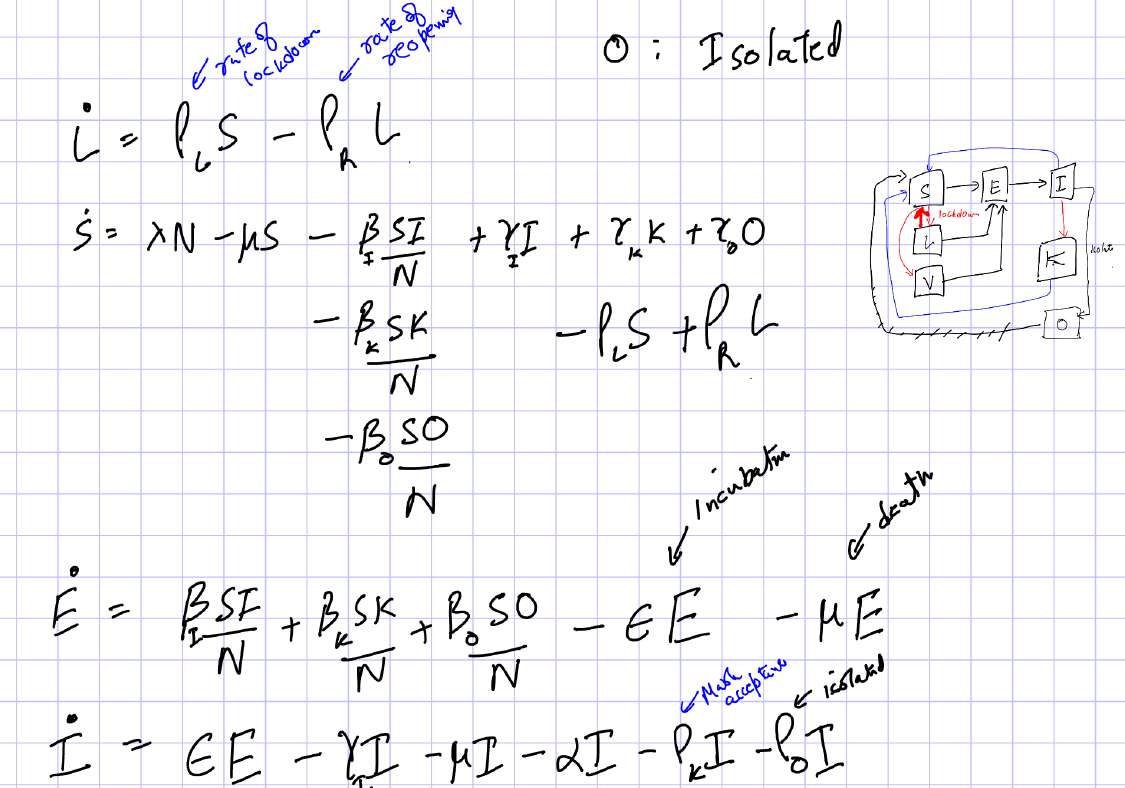 rate of lockdown
rate of reopening
O : Isolated
L̇ = ρ_L S − ρ_R L
Ṡ = λN − μS − β_I SI/N + γ_I I + γ_K K + γ_O O
− β_K SK/N − ρ_L S + ρ_R L
− β_O SO/N
S E I
lockdown
L
V
K
O
incubatin
death
Ė = β_I SI/N + β_K SK/N + β_O SO/N − ϵE − μE
Mask acceptive
isolated
İ = ϵE − γ_I I − μI − αI − ρ_K I − ρ_O I